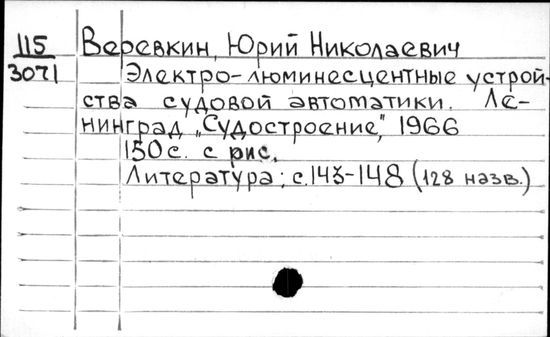 115
3071
Веревкин, Юрий Николаевич
Электро-люминесцентные устрой-
ства судовой автоматики. Ле-
нинград „Судостроение", 1966
150с. с рис.
Литература: с.143-148 (128 назв.)